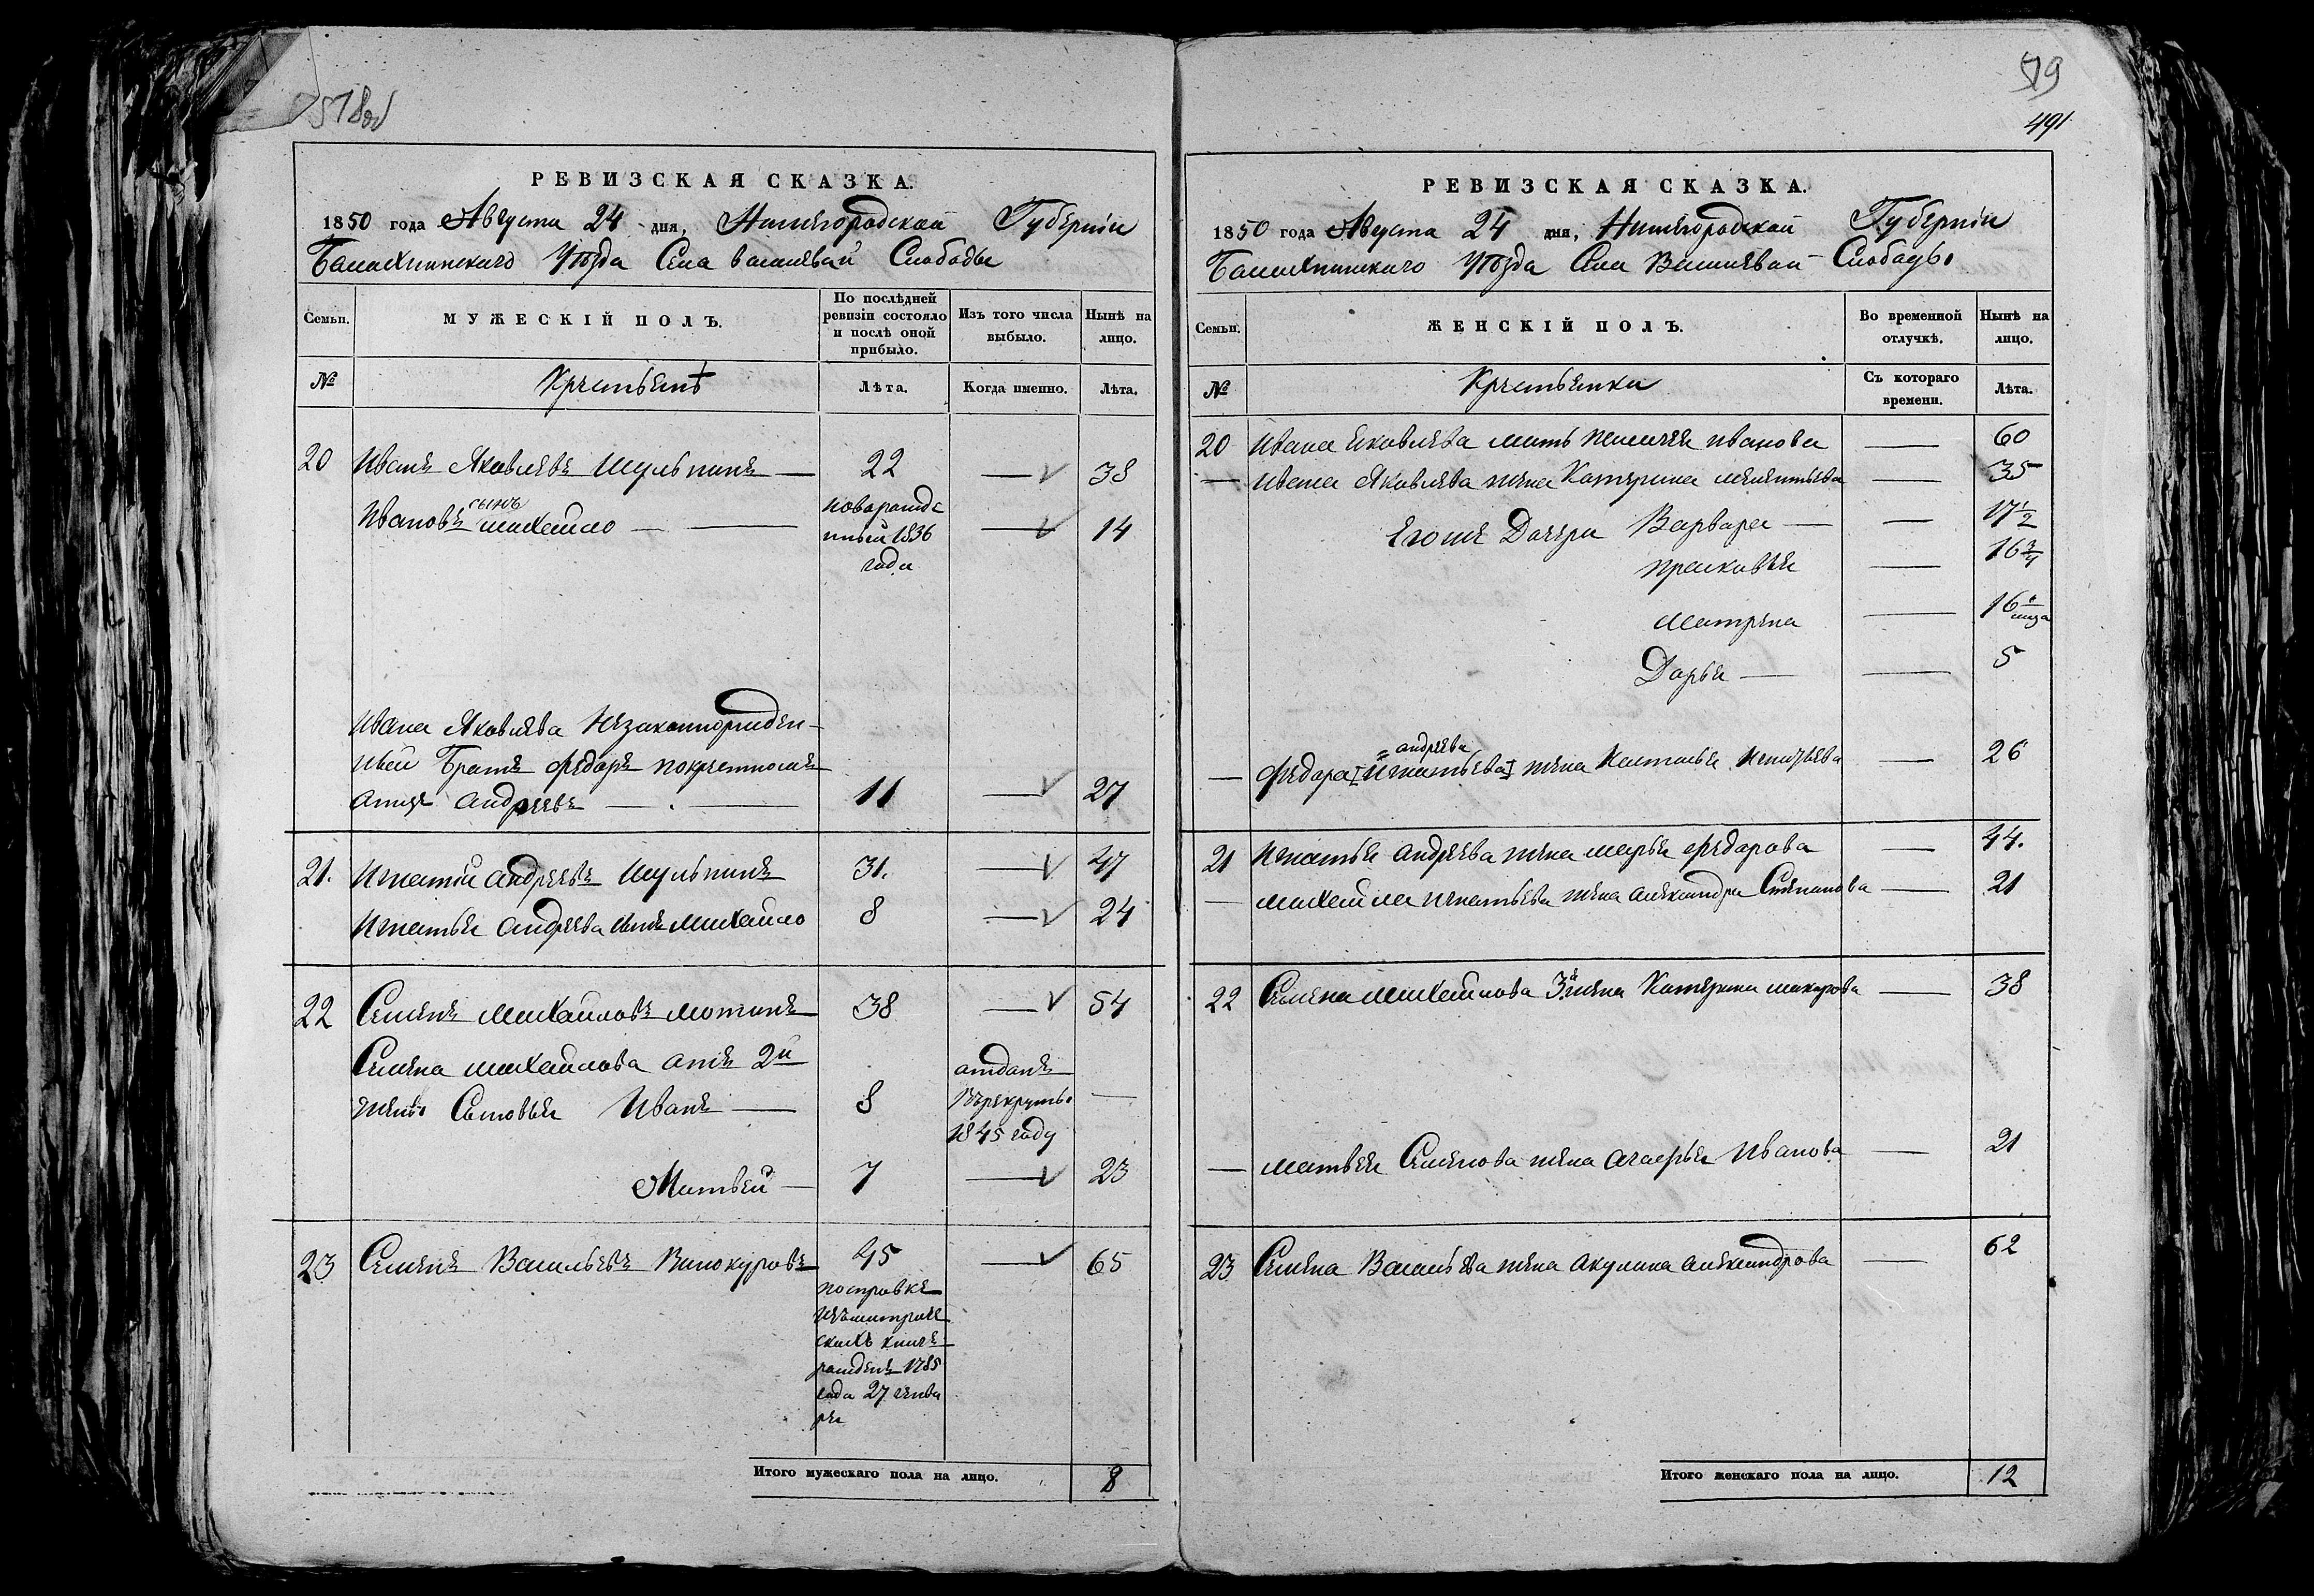 578об
РЕВИЗСКАЯ СКАЗКА.
1850 года Августа 24 дня, Нижегородской Губерніи
Балахнинскаго Уѣзда Села Василевай Слабоды
Семьи. МУЖЕСКІЙ ПОЛЪ. По послѣдней ревизіи состояло и послѣ оной прибыло. Изъ того числа выбыло. Нынѣ на лицо.
№ Крестьенѣ Лѣта. Когда именно. Лѣта.
20 Иванъ Яковлевъ Шульпинъ — 22 — 38
Ивановъ сынъ Михайло — новорожде
нный 1836 — 14
года
Ивана Яковлева Незаконнорожден
ный Братъ Федоръ покрестном
Отцу Андреевъ — 11 — 27
21. Игнатій Андреевъ Шульпинъ 31. — 47
Игнатья Андреева сынъ Михайло 8 — 24
22 Семенъ Михайловъ Мотинъ 38 — 54
Семена Михайлова отъ 2й отданъ
жены Сыновья Иванъ — 8 Врекруты —
1845 году
Матвей — 7 — 23
23 Семенъ Васильевъ Винокуровъ 45 — 65
посправке
изъметриче
скихъ книгъ
рожденъ 1785
года 27 генва
ря
Итого мужескаго пола на лицо. 8
579
491
РЕВИЗСКАЯ СКАЗКА.
1850 года Августа 24 дня, Нижегородской Губерніи
Балахнинскаго Уѣзда Села Василевай Слабоды
Семьи. ЖЕНСКІЙ ПОЛЪ. Во временной отлучкѣ. Нынѣ на лицо.
№ Крестьенки Съ котораго времени. Лѣта.
20 Ивана Яковлева мать Пелагея Иванова — 60
— Ивана Яковлева жена Катерина Мелентьева — 35
Егоже Дочери Варвара — — 17 1/2
Прасковья — 16 3/4
Матрена — 16 1/мца
Дарья — — 5
андреева
— Федора [Игнатьева] жена Настасья Игнатьева — 26
21 Игнатья Андреева жена Марья Федарова — 44.
— Михайла Игнатьева жена Александра Степанова — 21
22 Семена Михайлова 3я жена Катерина Макарова — 38
— Матвея Семенова жена Агафья Иванова — 21
23 Семена Васильева жена Акулина Александрова — 62
Итого женскаго пола на лицо. 12